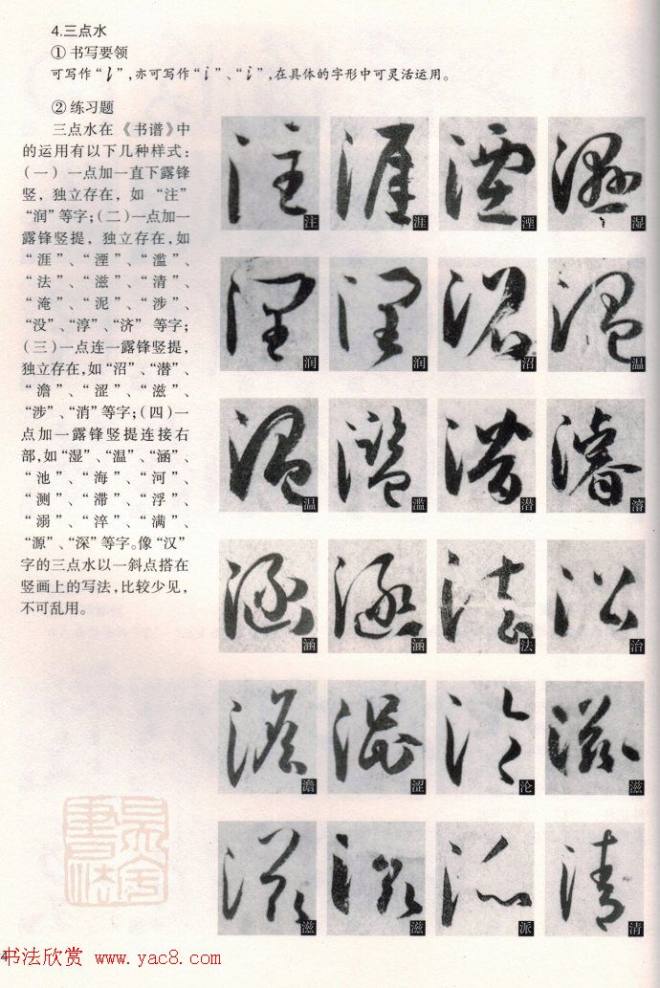 4.三点水
① 书写要领
可写作“ ”,亦可写作“ ”、“ ”,在具体的字形中可灵活运用。
② 练习题
三点水在《书谱》中
的运用有以下几种样式:
(一) 一点加一直下露锋
竖, 独立存在, 如 “注”
“润”等字;(二)一点加一
露锋竖提, 独立存在,如
“涯”、“湮”、“滥”、
“法”、“滋”、“清”、
“淹”、“泥”、“涉”、
“没”、“淳”、“济” 等字;
(三)一点连一露锋竖提,
独立存在,如“沼”、“潜”、
“澹”、“涩”、“滋”、
“涉”、“消”等字;(四)一
点加一露锋竖提连接右
部,如“湿”、“温”、“涵”、
“池”、“海”、“河”、
“测”、“滞”、“浮”、
“溺”、“淬”、“满”、
“源”、“深”等字。像“汉”
字的三点水以一斜点搭在
竖画上的写法,比较少见,
不可乱用。
注 涯 湮 湿
润 润 沼 温
温 滥 潜 濬
涵 涵 法 治
澹 涩 沦 滋
滋 滋 派 清
4
书法欣赏 www.yac8.com